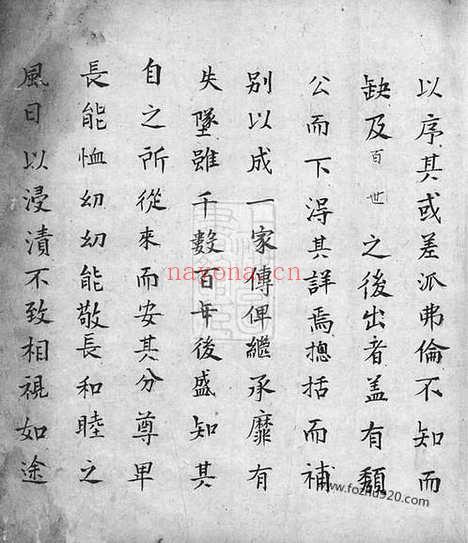 以序其或差派弗倫不知而
缺及百世之後出者盖有頽
公而下淂其詳焉揔括而補
别以成一家傳俾繼承靡有
失墜雖千數百年後盛知其
自之所從來而安其分尊卑
長能恤幼幼能敬長和睦之
風日以浸漬不致相視如途
nayona.cn
www.fozhu920.com